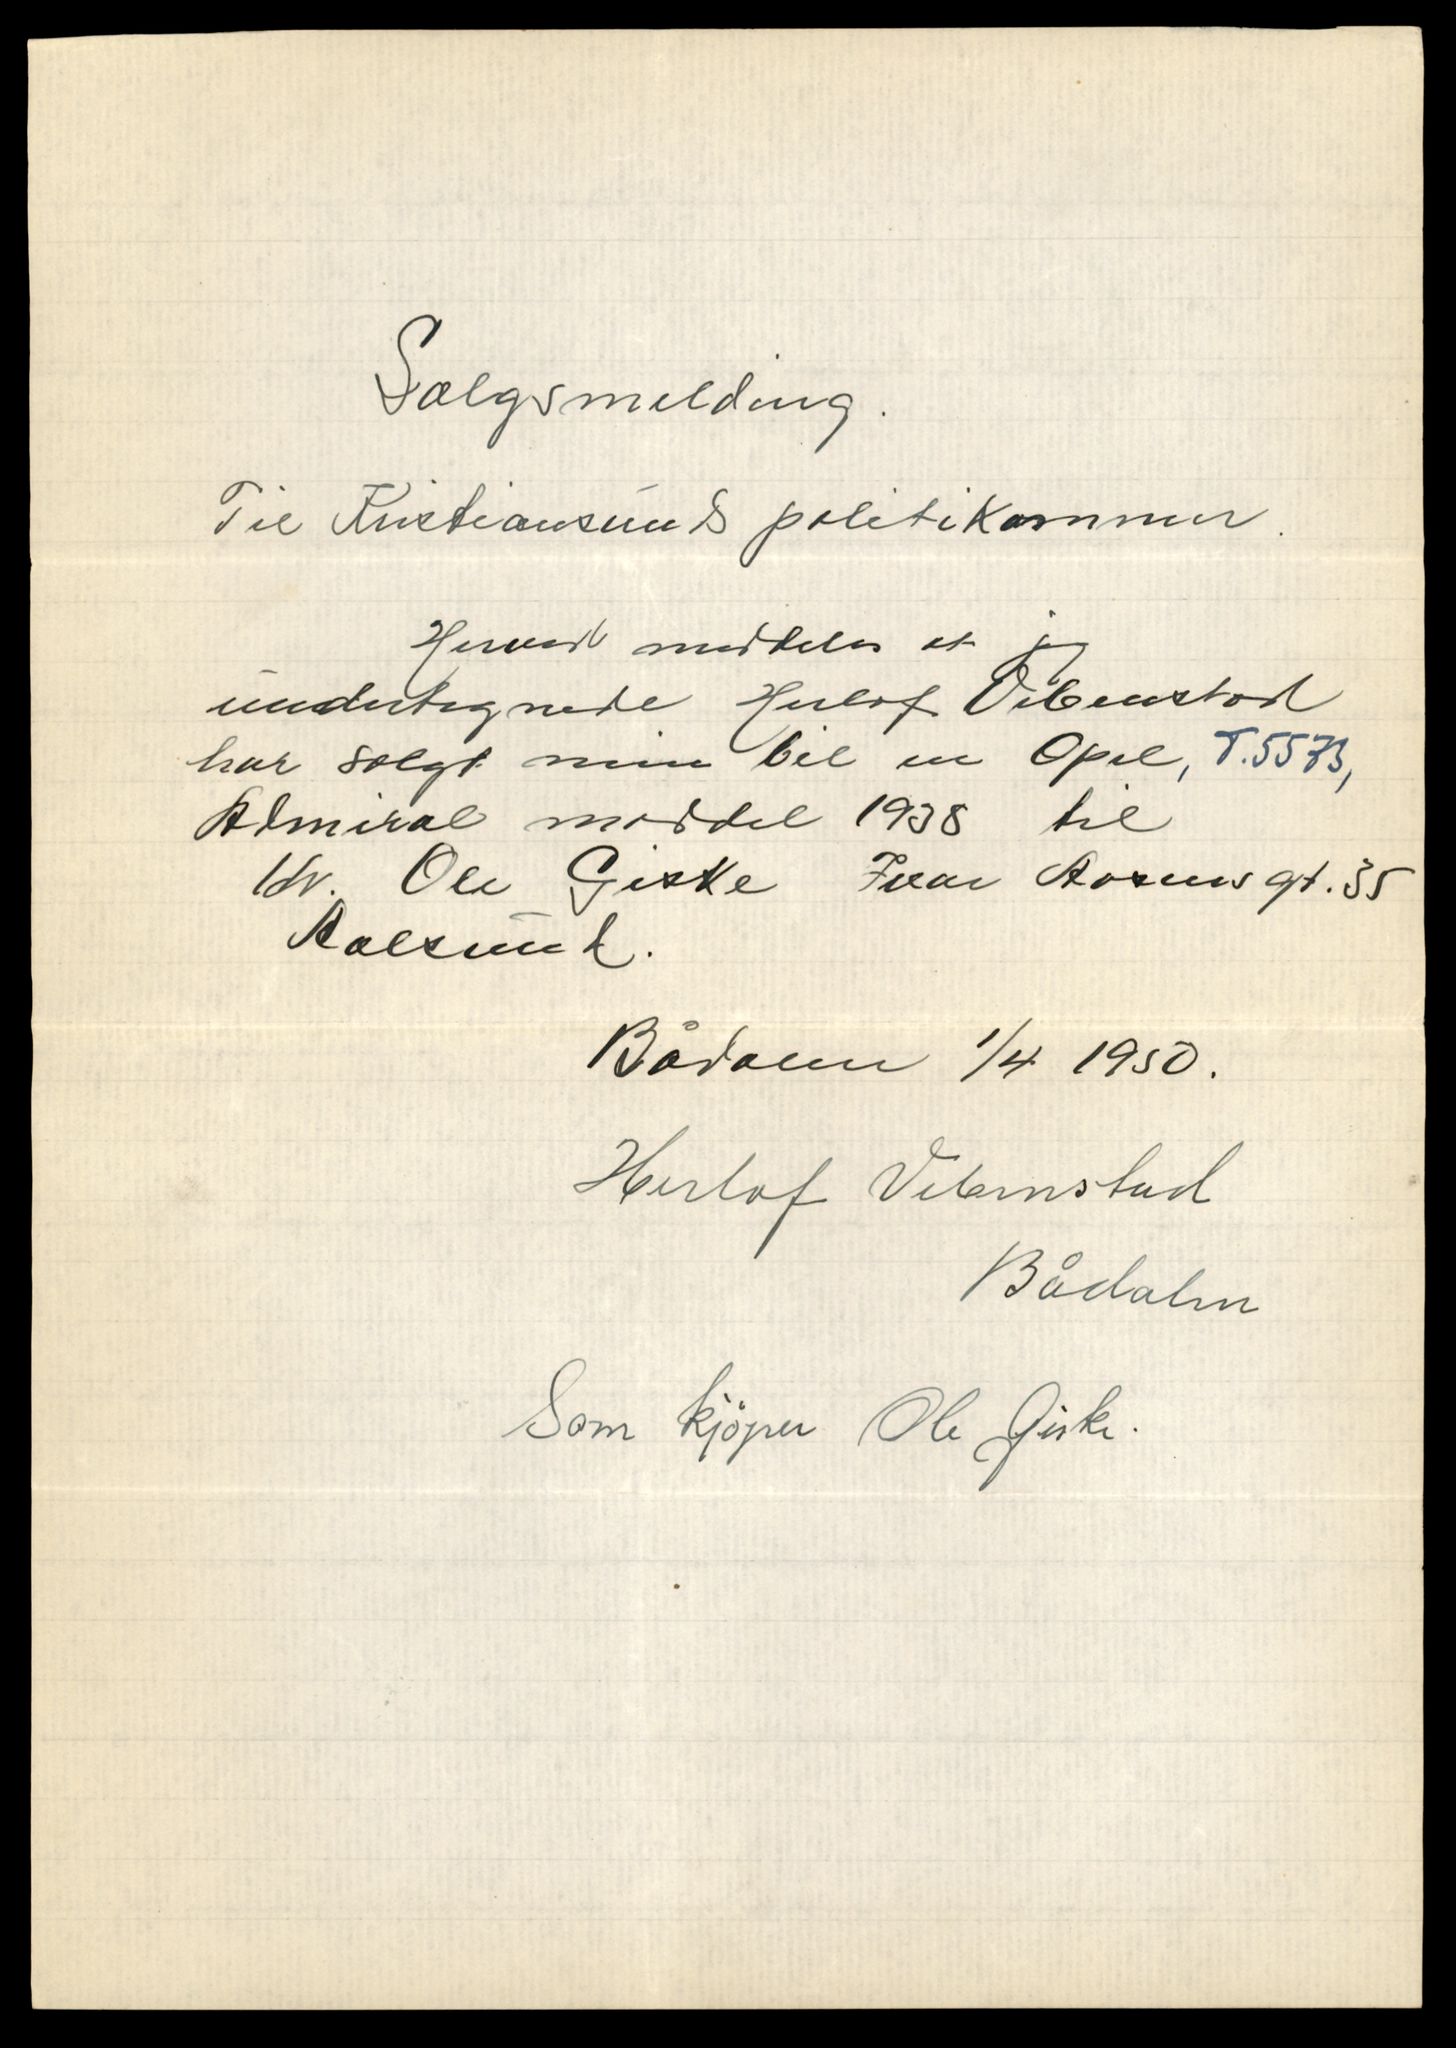 Salgsmelding.
Til Kristiansunds politikammer.
Herved meddeles at jeg
undertegnede Herlof Vebenstad
har solgt min bil en Opel, T.5573,
Admiral moddel 1938 til
Hr. Ole Giske Ivar Aasens gt. 35
Aalesund.
Bådalen 1/4 1950.
Herlof Vebenstad
Bådalen
Som kjöper Ole Giske.